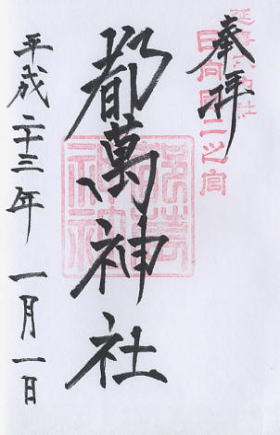 奉拝
日向國二之宮
都萬神社
平成二十三年 一月一日